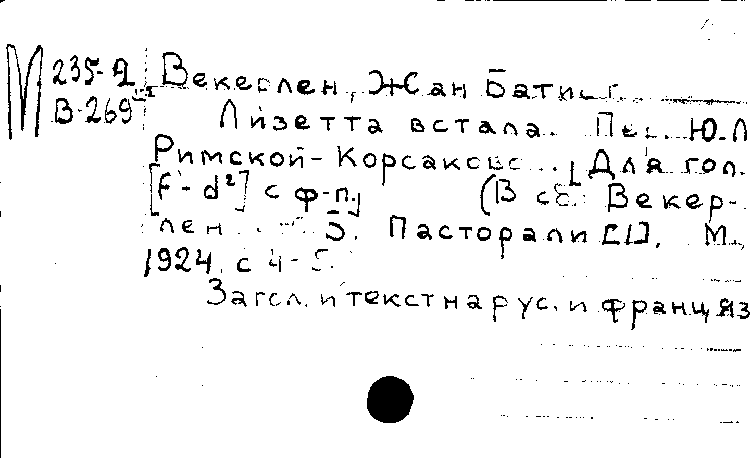 М 235-2 Векерлен, Жан Батист.
В-269 Лизетта встала. Пер. Ю. Л
Римской-Корсаково... [Для гол.
[f'-d²] с ф-п.] (В сб: Векер-
лен Ж. Б. Пасторали [1]. М.,
1924 с 4-5.
Загол. и текст на рус. и франц яз